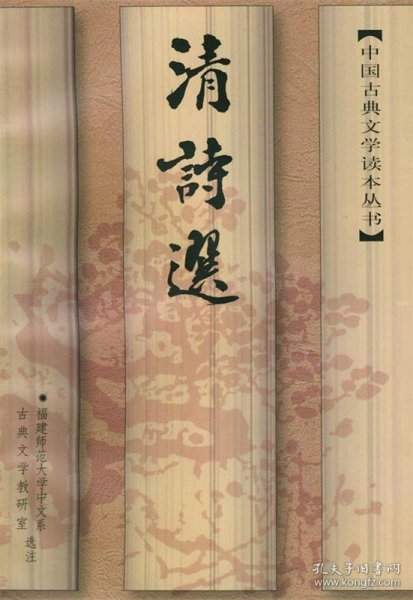 【中国古典文学读本丛书】
清詩選
●福建师范大学中文系
古典文学教研室 选注
孔夫子旧书网
www.kongfz.com